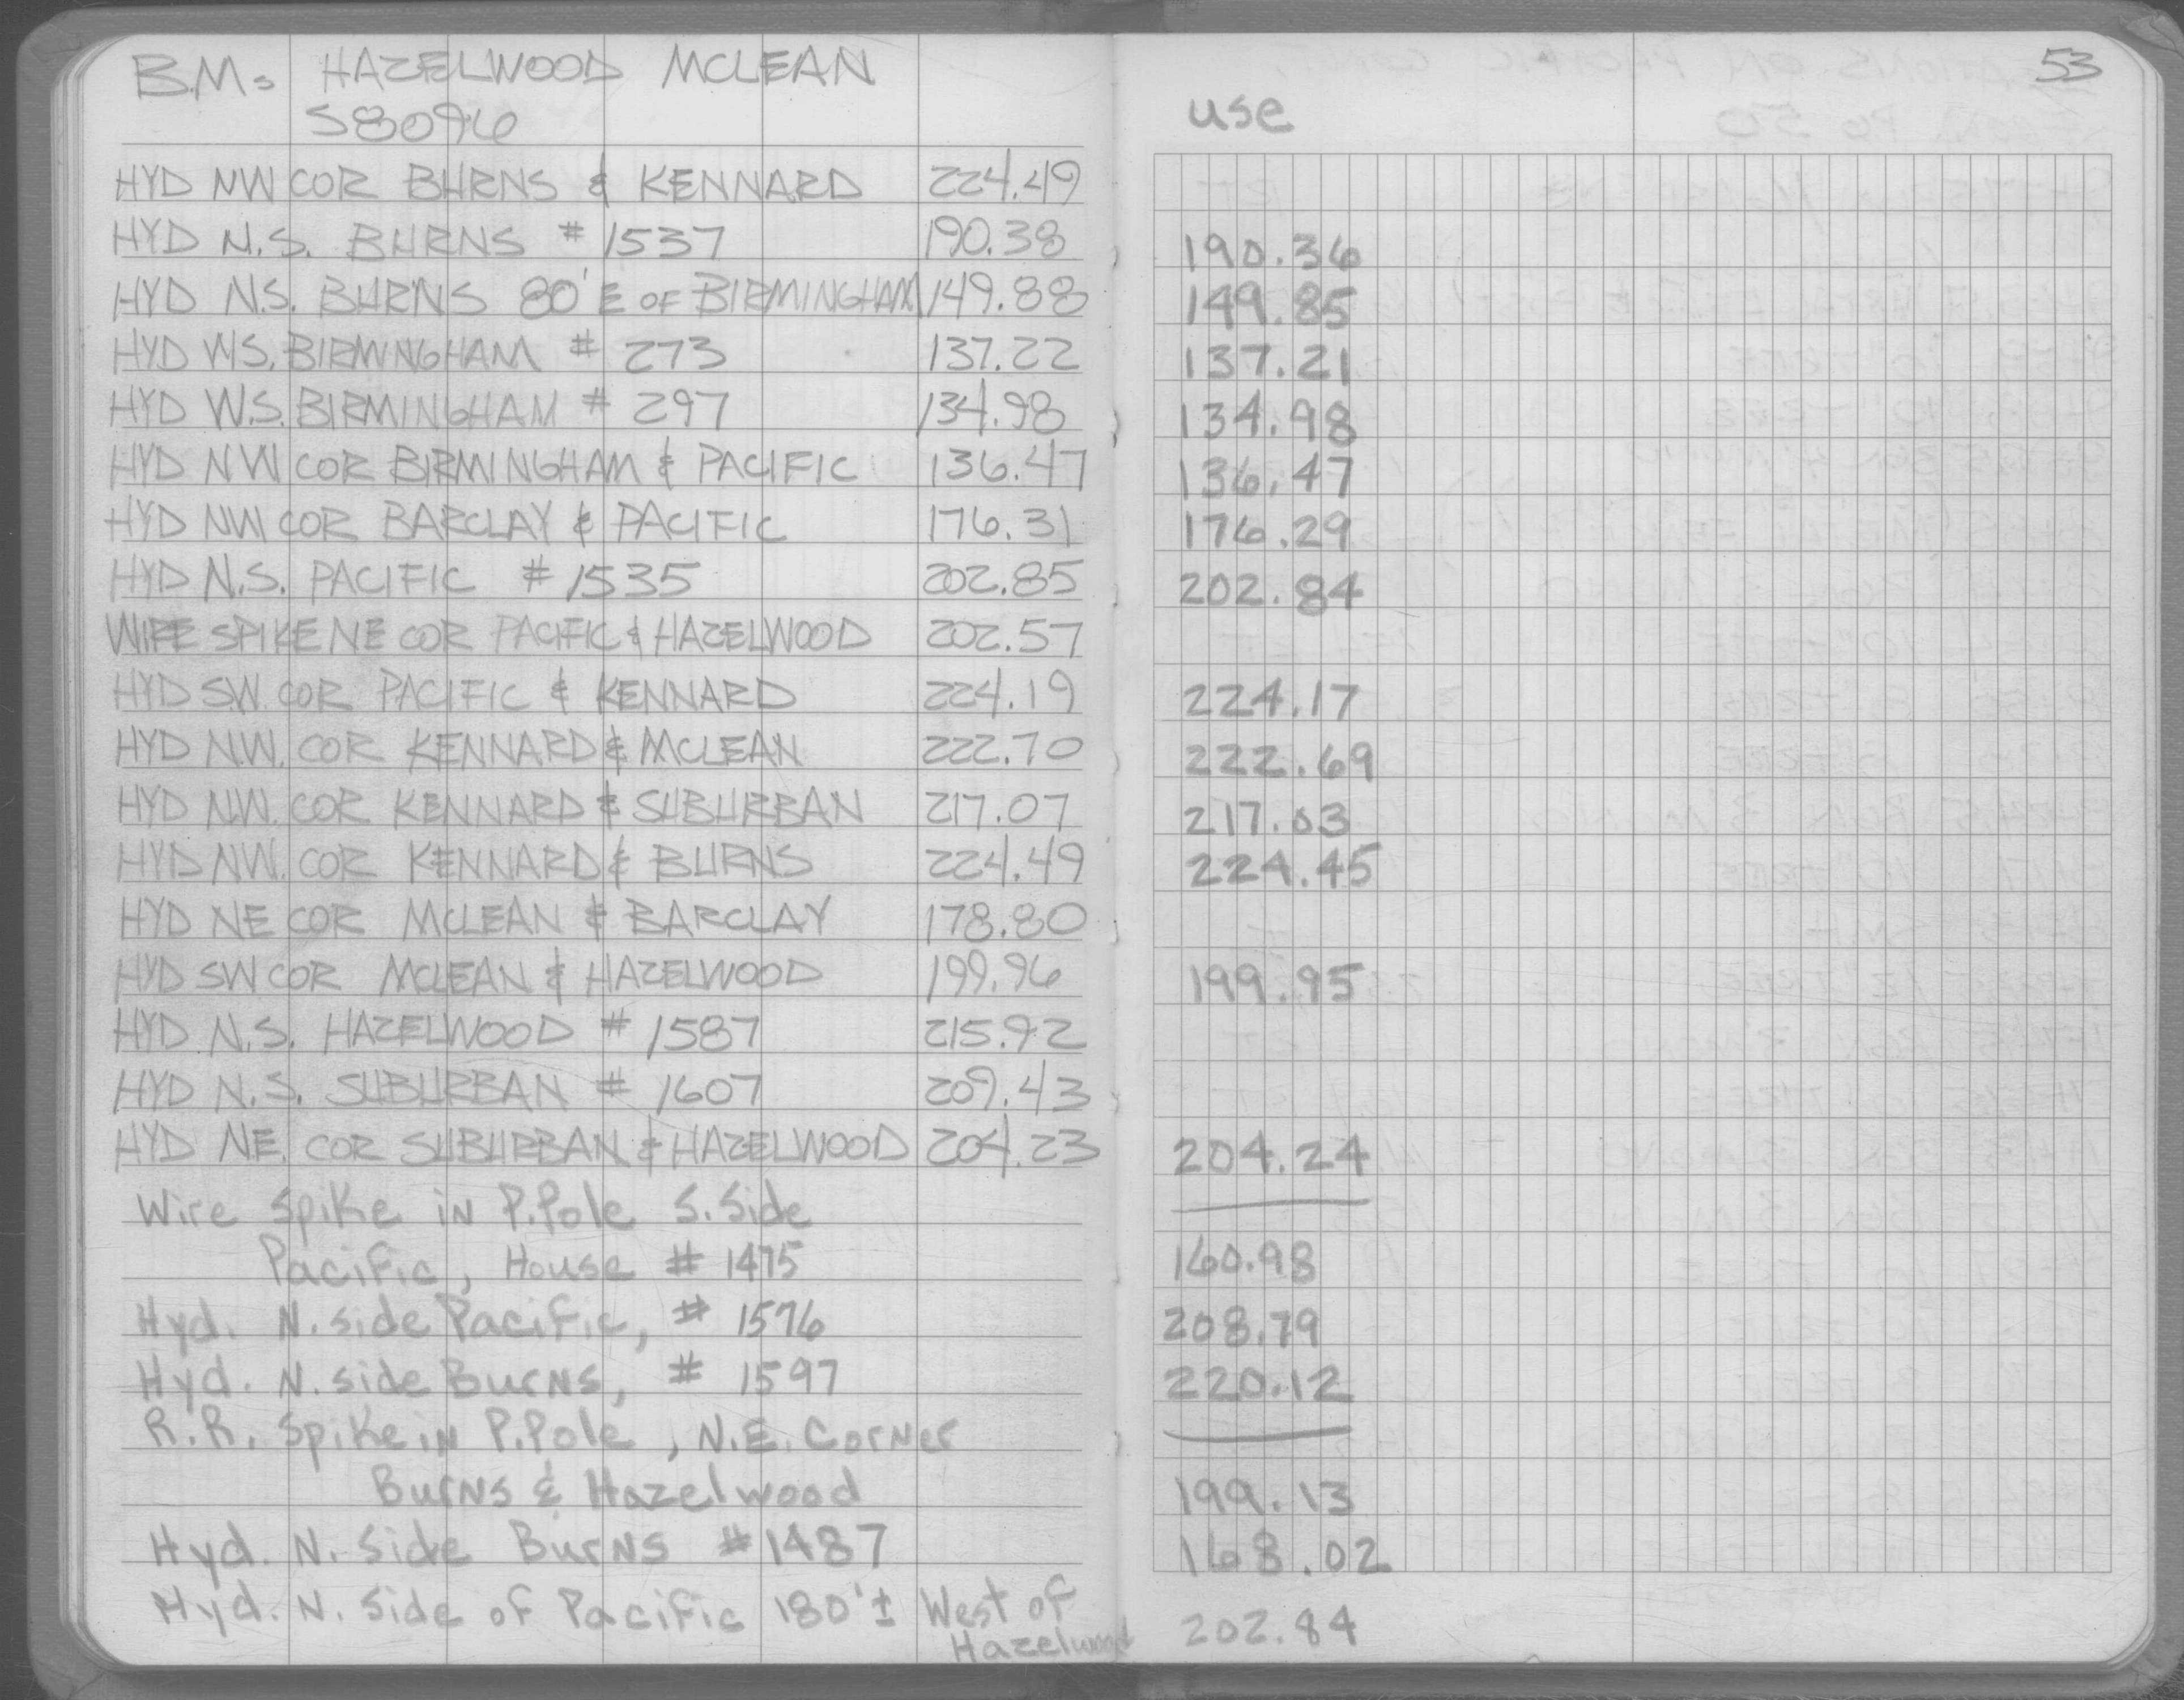 B.M.s HAZELWOOD MCLEAN
S8096
use
53
HYD NW COR BURNS & KENNARD 224.49
HYD N.S. BURNS # 1537 190.38 190.36
HYD N.S. BURNS 80' E OF BIRMINGHAM 149.88 149.85
HYD W.S. BIRMINGHAM # 273 137.22 137.21
HYD W.S. BIRMINGHAM # 297 134.98 134.98
HYD NW COR BIRMINGHAM & PACIFIC 136.47 136.47
HYD NW COR BARCLAY & PACIFIC 176.31 176.29
HYD N.S. PACIFIC # 1535 202.85 202.84
WIRE SPIKE NE COR PACIFIC & HAZELWOOD 202.57
HYD S.W. COR PACIFIC & KENNARD 224.19 224.17
HYD N.W. COR KENNARD & MCLEAN 222.70 222.69
HYD N.W. COR KENNARD & SUBURBAN 217.07 217.03
HYD N.W. COR KENNARD & BURNS 224.49 224.45
HYD NE COR MCLEAN & BARCLAY 178.80
HYD SW COR MCLEAN & HAZELWOOD 199.96 199.95
HYD N.S. HAZELWOOD # 1587 215.92
HYD N.S. SUBURBAN # 1607 209.43
HYD NE. COR SUBURBAN & HAZELWOOD 204.23 204.24
Wire Spike in P.Pole S.Side
Pacific, House # 1475 160.98
Hyd. N. side Pacific, # 1576 208.79
Hyd. N. side Burns, # 1597 220.12
R.R. Spike in P.Pole, N.E. Corner
Burns & Hazelwood 199.13
Hyd. N. Side Burns #1487 168.02
Hyd. N. Side of Pacific 180'± West of
Hazelwood 202.84